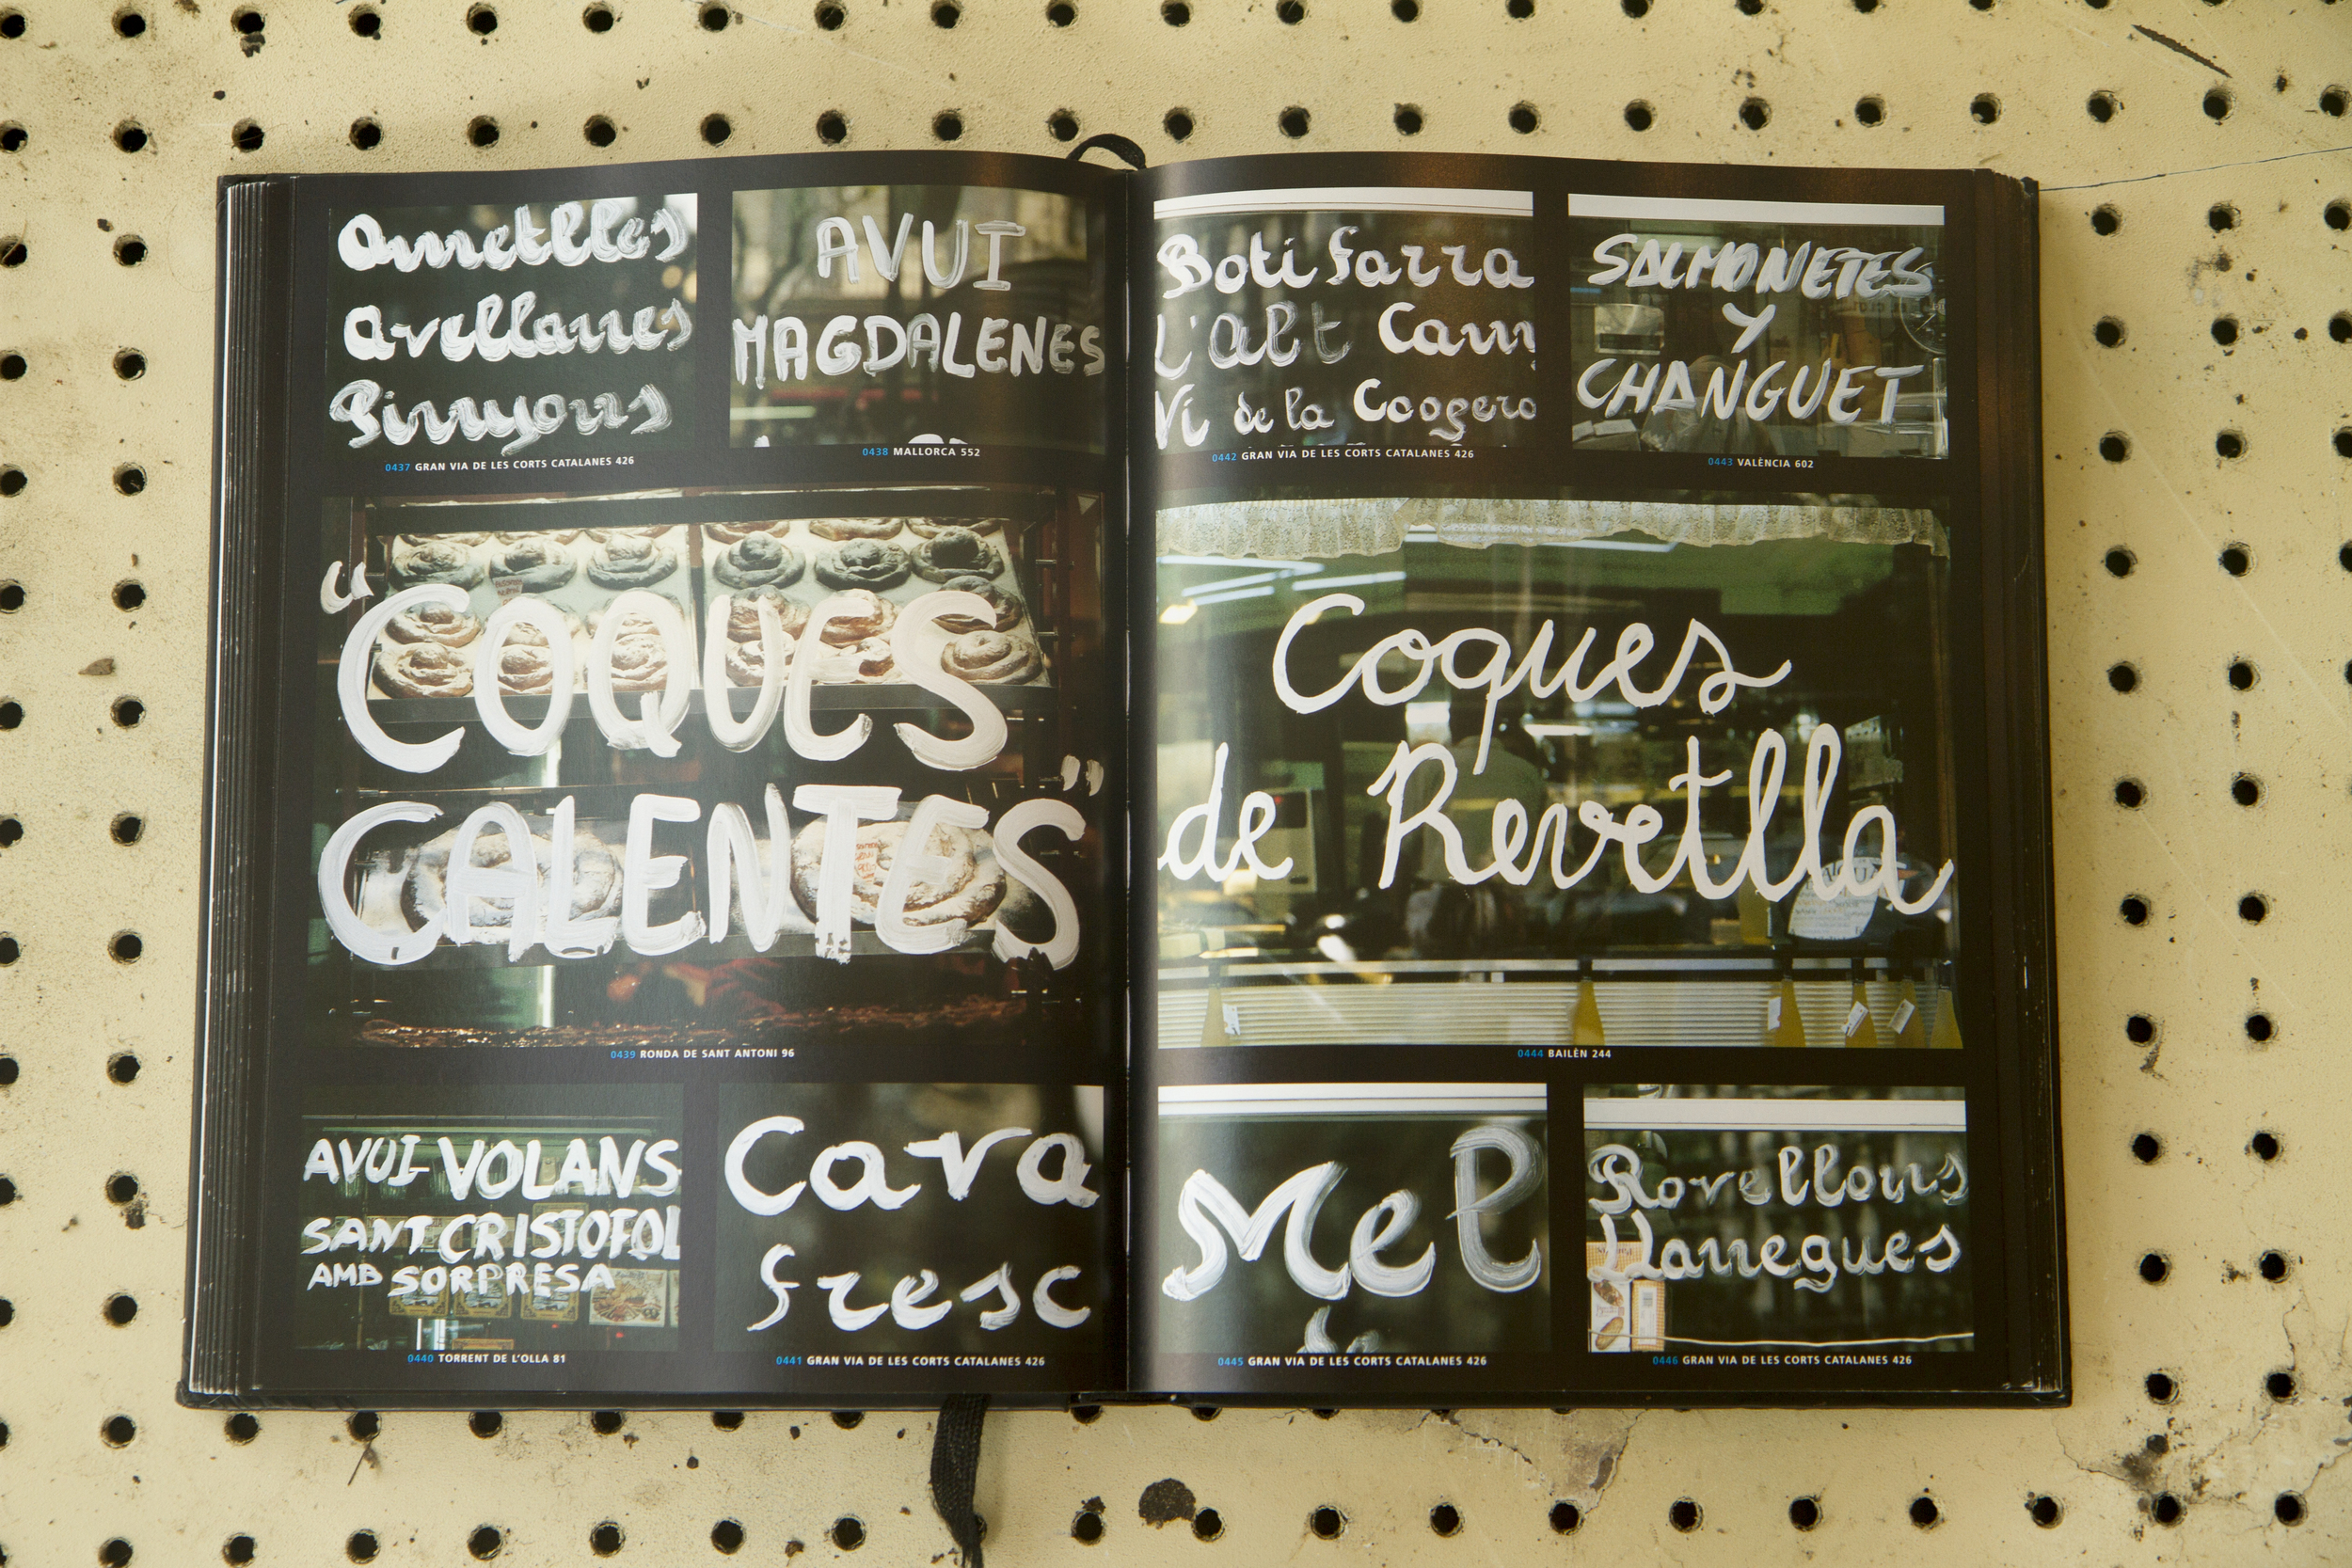 Ametlles
Avellanes
Pinyons
0437 GRAN VIA DE LES CORTS CATALANES 426
AVUI
MAGDALENES
0438 MALLORCA 552
“COQUES
CALENTES”
0439 RONDA DE SANT ANTONI 96
AVUI-VOLANS
SANT CRISTOFOL
AMB SORPRESA
0440 TORRENT DE L'OLLA 81
Cava
fresc
0441 GRAN VIA DE LES CORTS CATALANES 426
Botifarra
L'Alt Cam
Vi de la Coopera
0442 GRAN VIA DE LES CORTS CATALANES 426
SALMONETES
Y
CHANGUET
0443 VALÈNCIA 602
Coques
de Revetlla
0444 BAILÈN 244
Mel
0445 GRAN VIA DE LES CORTS CATALANES 426
Rovellons
Llanegues
0446 GRAN VIA DE LES CORTS CATALANES 426